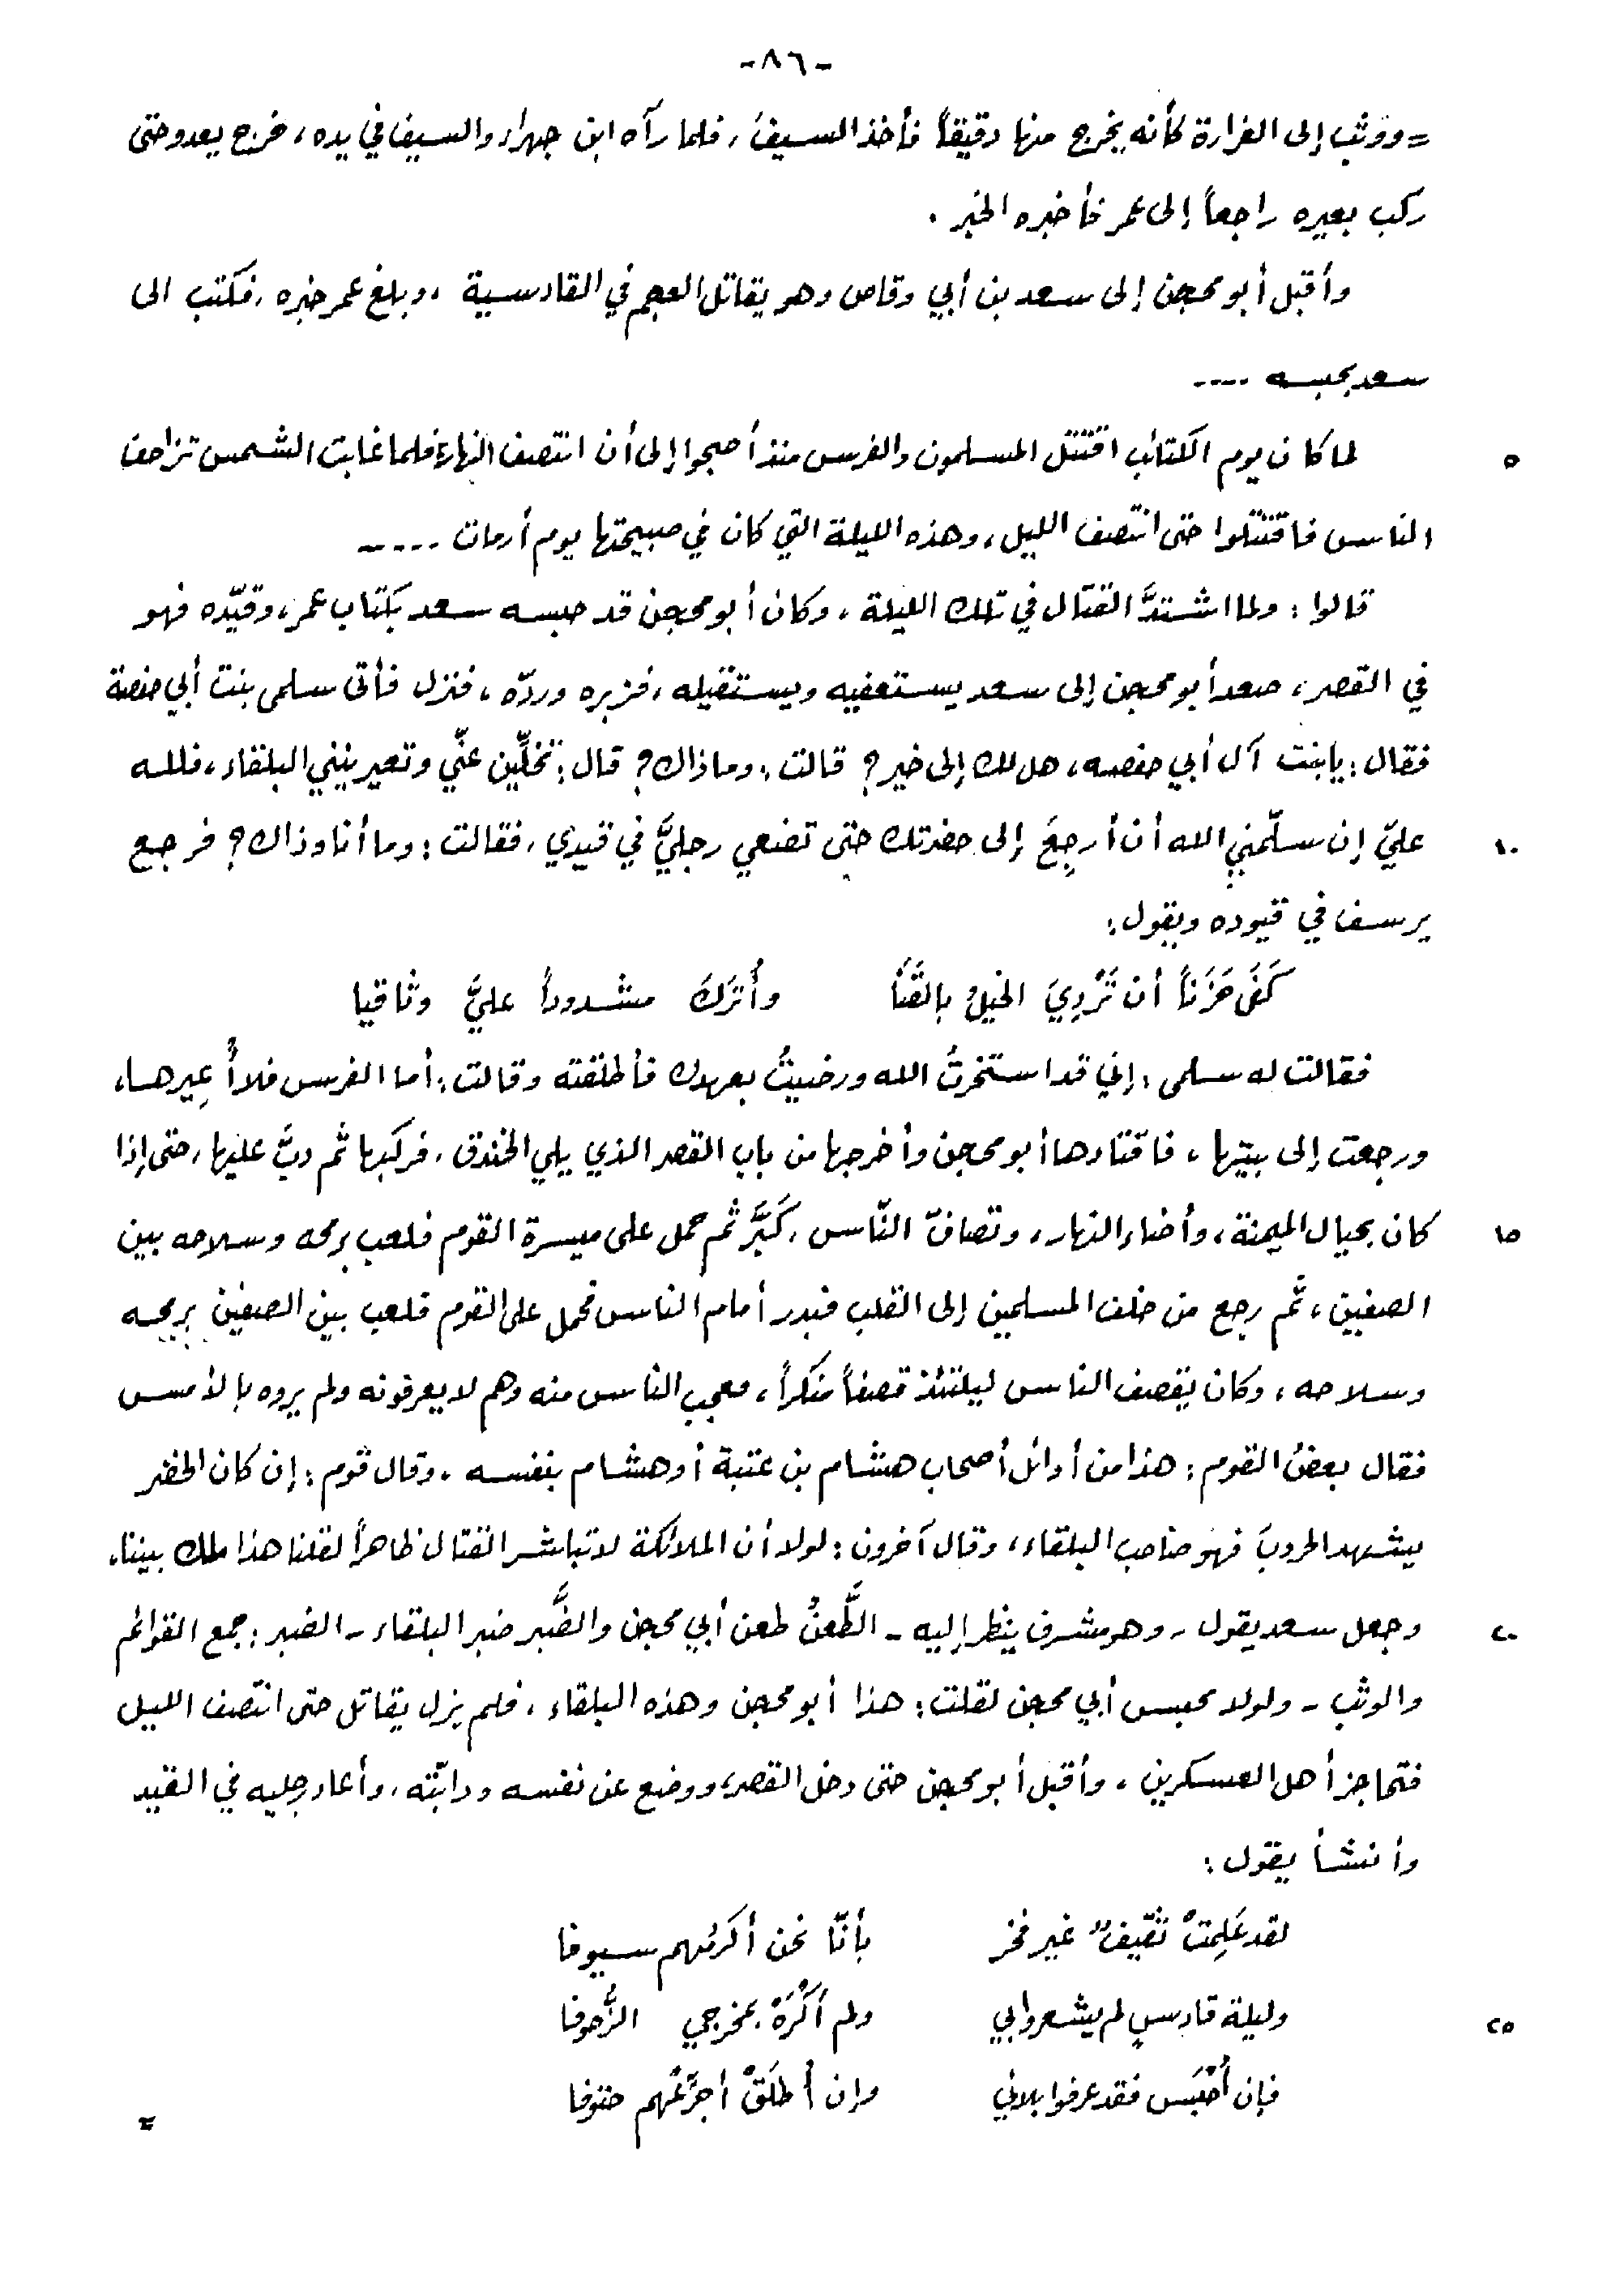 -٨٦-
= ووثب إلى الغرارة كأنه يخرج منها دقيقاً فأخذ السيفَ، فلما رآه ابن جهراء والسيف في يده، خرج يعدو حتى
ركب بعيره راجعاً إلى عمر فأخبره الخبر.
وأقبل أبو محجن إلى سعد بن أبي وقاص وهو يقاتل العجم في القادسية، وبلغ عمر خبره، فكتب الى
سعد بحبسه ....
٥ لما كان يوم الكتائب اقتتل المسلمون والفرس منذ أصبحوا إلى أن انتصف النهار، فلما غابت الشمس تزاحف
الناس فاقتتلوا حتى انتصف الليل، وهذه الليلة التي كان في صبيحتها يوم أرماث .....
قالوا: ولما اشتدَّ القتال في تلك الليلة، وكان أبو محجن قد حبسه سعد بكتاب عمر، وقيّده فهو
في القصر، صعد أبو محجن إلى سعد يستعفيه ويستقيله، فزبره وردّه، فنزل فأتى سلمى بنت أبي حفصة
فقال: يا بنت آل أبي حفصه، هل لك إلى خير؟ قالت: وما ذاك؟ قال: تخلِّين عنّي وتعيرينني البلقاء، فلله
١٠ عليّ إن سلّمني الله أن أرجِعَ إلى حضرتك حتى تضعي رجليَّ في قيدي، فقالت: وما أنا وذاك؟ فرجع
يرسف في قيوده ويقول:
كَفَى حَزَناً أن تَرْدِيَ الخيلُ بالقَنَا وأُترَكَ مشدوداً عليَّ وثاقيا
فقالت له سلمى: إني قد استخرتُ الله ورضيتُ بعهدك فأطلقته وقالت: أما الفرس فلا أُعِيرها،
ورجعت إلى بيتها، فاقتادها أبو محجن وأخرجها من باب القصر الذي يلي الخندق، فركبها ثم دبَّ عليها، حتى إذا
١٥ كان بحيال الميمنة، وأضاء النهار، وتصافّ النّاس، كَبَّر ثم حمل على ميسرة القوم فلعب برمحه وسلاحه بين
الصفين، ثم رجع من خلف المسلمين إلى القلب فبدر أمام الناس فحمل على القوم فلعب بين الصفين برمحه
وسلاحه، وكان يقصف الناس ليلتئذ قصفاً منكراً، فعجب الناس منه وهم لا يعرفونه ولم يروه بالأمس
فقال بعضُ القوم: هذا من أوائل أصحاب هشام بن عتبة أو هشام بنفسه، وقال قوم: إن كان الخضر
يشهد الحروبَ فهو صاحب البلقاء، وقال آخرون: لولا أن الملائكة لا تباشر القتال ظاهراً لقلنا هذا ملك بيننا،
٢٠ وجعل سعد يقول - وهو مشرف ينظر إليه - الطَّعنُ طعن أبي محجن والضَّبر ضبر البلقاء - الضبر: جمع القوائم
والوثب - ولولا محبس أبي محجن لقلت: هذا أبو محجن وهذه البلقاء، فلم يزل يقاتل حتى انتصف الليل
فتحاجز أهل العسكرين، وأقبل أبو محجن حتى دخل القصر، ووضع عن نفسه ودابّته، وأعاد رجليه في القيد
وأنشأ يقول:
لقد عَلِمتْ ثقيفٌ غير فخر بأنّا نحن أكرمُهم سيوفا
٢٥ وليلة قادسٍ لم يشعروا بي ولم أَكْرَهْ بمخرجي الزُّحوفا
فإن أُحْبَس فقد عرفوا بلائي وإن أُطلَقْ أجرِّعْهم حتوفا
=